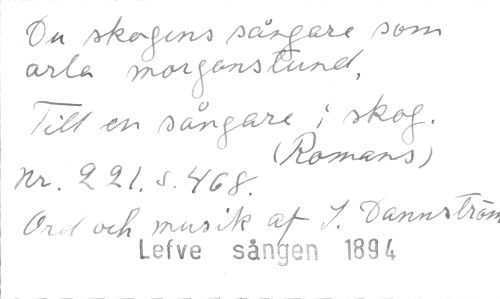 Du skogens sångare som
arla morgonstund,
Till en sångare i skog.
(Romans)
Nr. 221. s. 468.
Ord och musik af I. Dannström
Lefve sången 1894